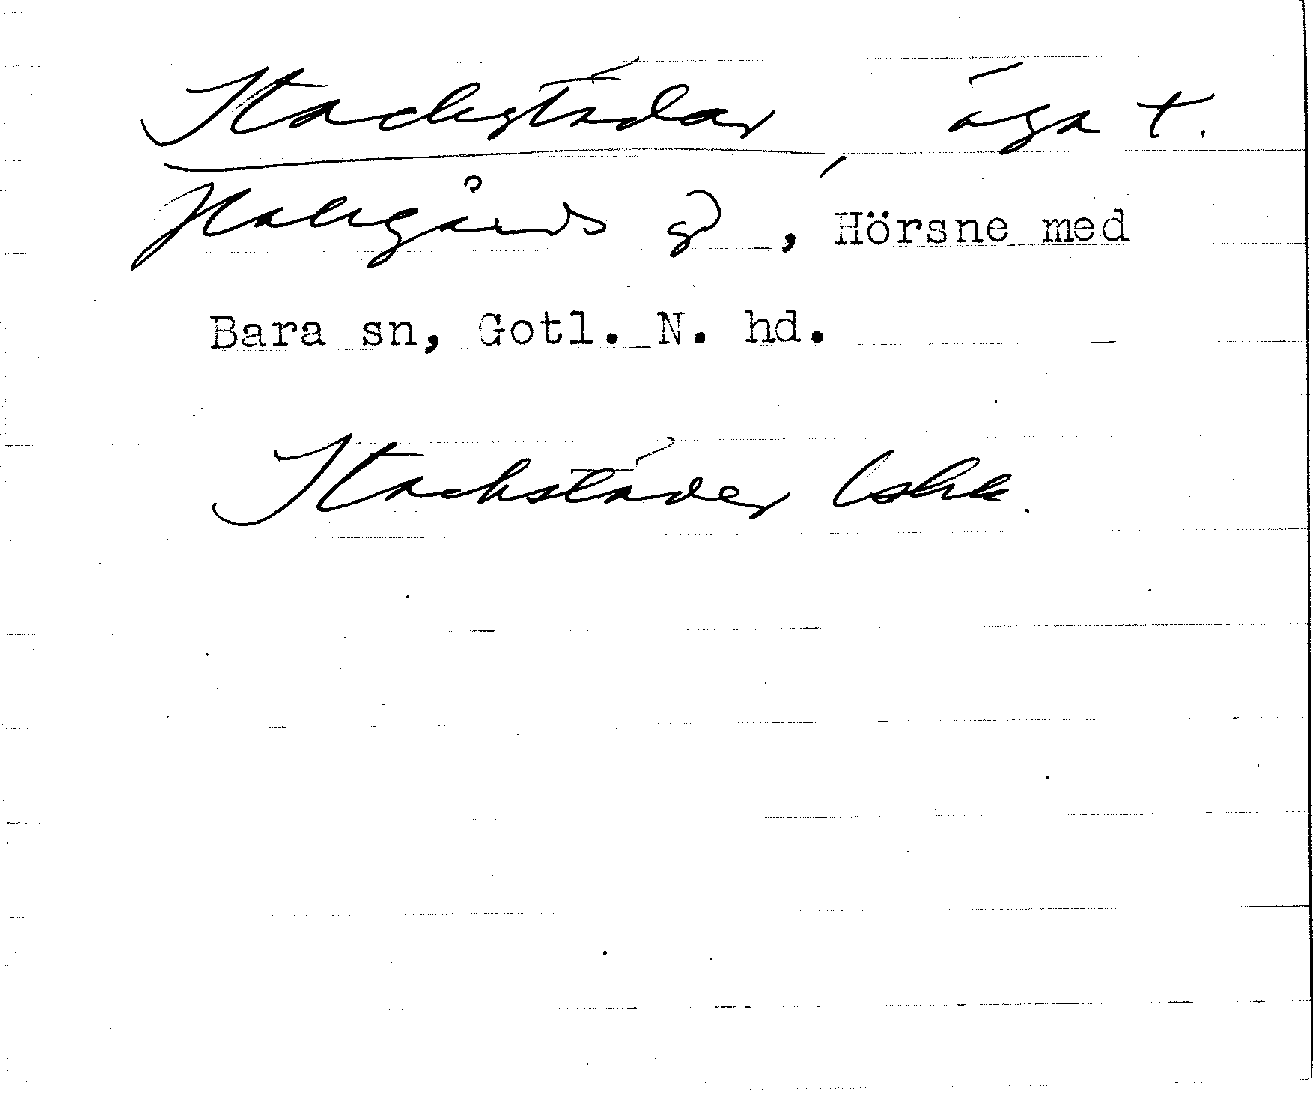 Stackstädar, äga t.
Hallgårds gd, Hörsne med
Bara sn, Gotl. N. hd.
Stackstäder Lskk.